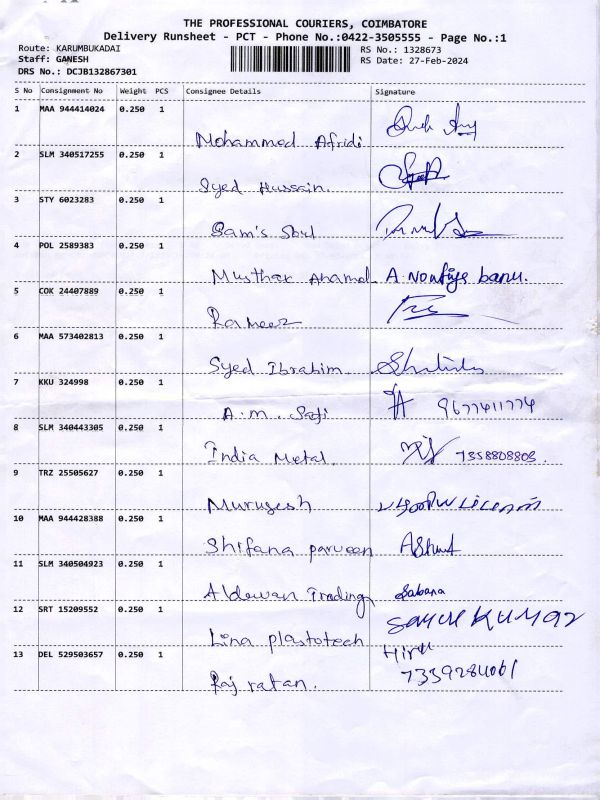 THE PROFESSIONAL COURIERS, COIMBATORE
Delivery Runsheet - PCT - Phone No.:0422-3505555 - Page No.:1
Route: KARUMBUKADAI
RS No.: 1328673
Staff: GANESH
RS Date: 27-Feb-2024
DRS No.: DCJB132867301
S No Consignment No Weight PCS Consignee Details Signature
1 MAA 944414024 0.250 1
Mohammed Afridi
2 SLM 340517255 0.250 1
Syed Hussain.
3 STY 6023283 0.250 1
Sam's
4 POL 2589383 0.250 1
A. banu.
5 COK 24407889 0.250 1
Rameez
6 MAA 573402813 0.250 1
Syed Ibrahim.
7 KKU 324998 0.250 1
A.M. 9677411774
8 SLM 340443305 0.250 1
India Metal. 7358808803.
9 TRZ 25505627 0.250 1
Murugesh
10 MAA 944428388 0.250 1
Shifana parveen
11 SLM 340504923 0.250 1
Aldewan Trading Sabana
12 SRT 15209552 0.250 1
Lina plastotech
13 DEL 529503657 0.250 1
Raj ratan. 7339284061